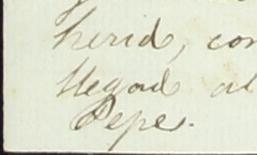 herid, con
llegad al
Pepe.